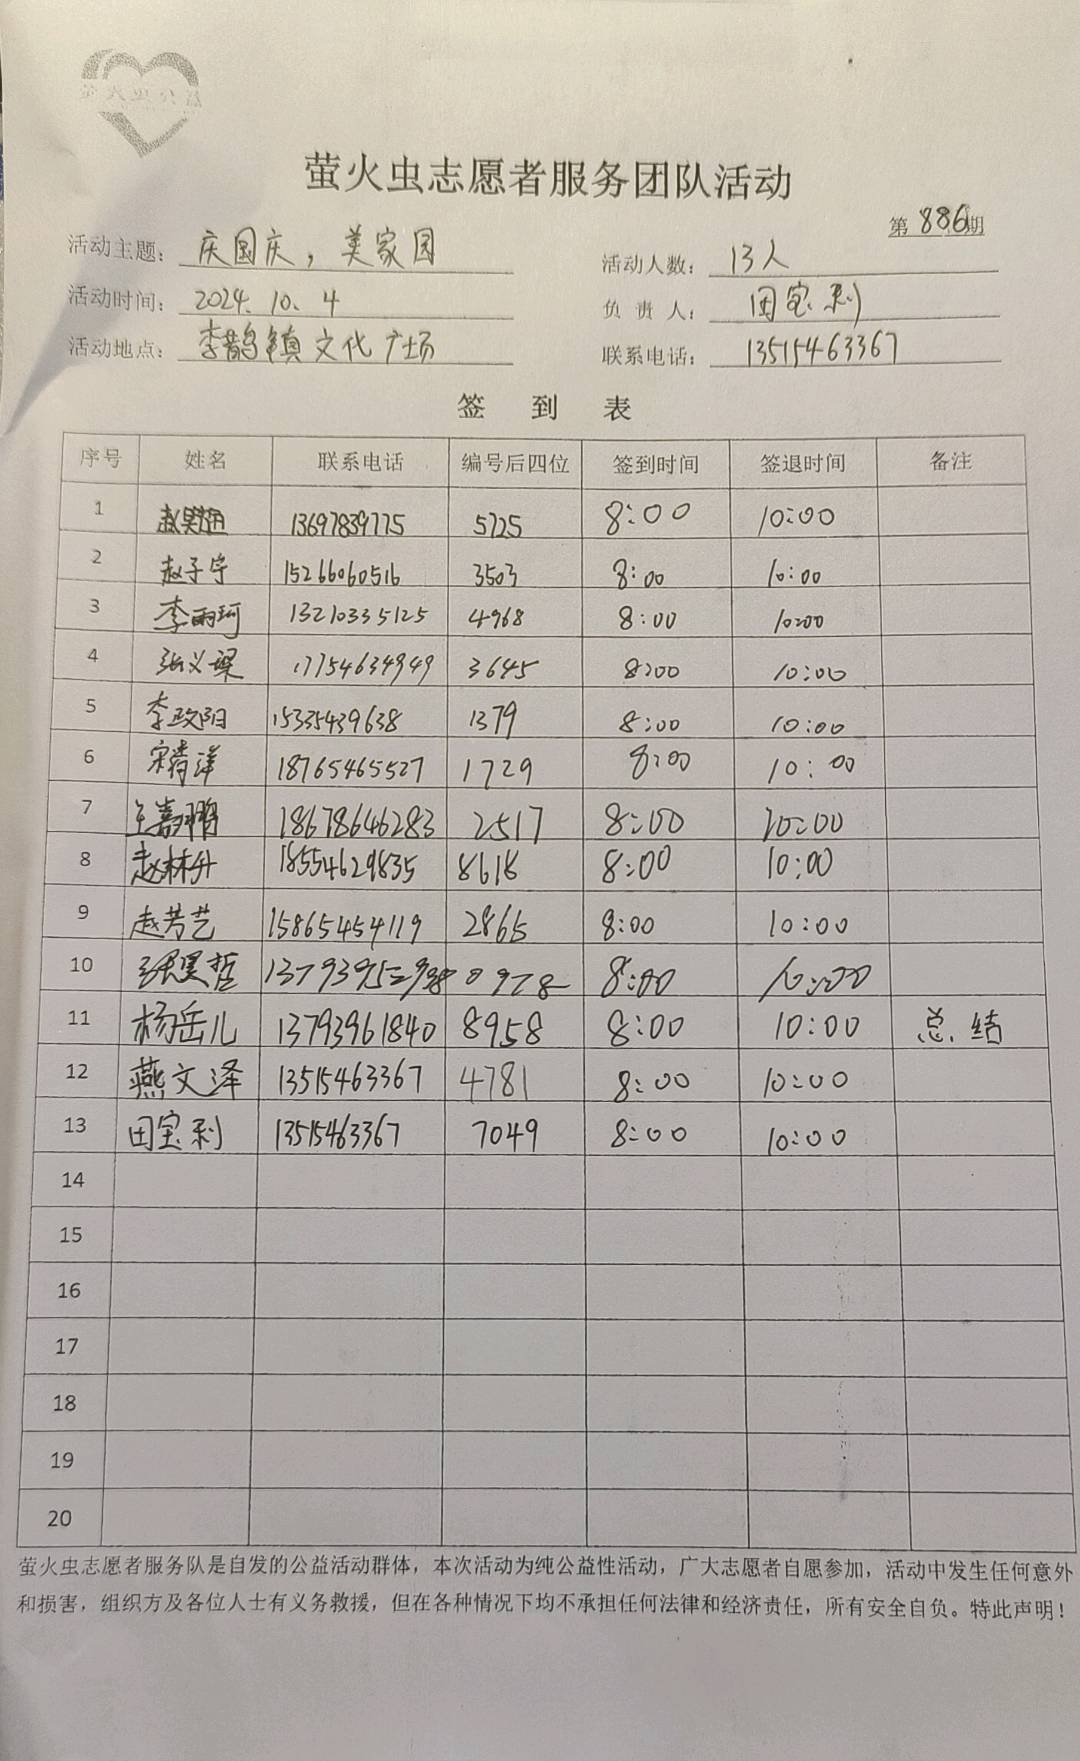 萤火虫公益
萤火虫志愿者服务团队活动
第886期
活动主题：庆国庆，美家园 活动人数：13人
活动时间：2024.10.4 负责人：田宝利
活动地点：李鹊镇文化广场 联系电话：13515463367
签到表
序号 姓名 联系电话 编号后四位 签到时间 签退时间 备注
1 13697839775 5725 8:00 10:00
2 赵子宇 15266060516 3503 8:00 10:00
3 李雨珂 13210335125 4968 8:00 10:00
4 张义梁 17754634949 3645 8:00 10:00
5 李政阳 15335439638 1379 8:00 10:00
6 宋清洋 18765465527 1729 8:00 10:00
7 王嘉 18678646283 2517 8:00 10:00
8 赵林升 18554629835 8618 8:00 10:00
9 赵芳艺 15865454119 2865 8:00 10:00
10 张昊哲 0978 8:00 10:00
11 杨岳儿 13793961840 8958 8:00 10:00 总结
12 燕文泽 13515463367 4781 8:00 10:00
13 田宝利 13515463367 7049 8:00 10:00
14
15
16
17
18
19
20
萤火虫志愿者服务队是自发的公益活动群体，本次活动为纯公益性活动，广大志愿者自愿参加，活动中发生任何意外
和损害，组织方及各位人士有义务救援，但在各种情况下均不承担任何法律和经济责任，所有安全自负。特此声明！